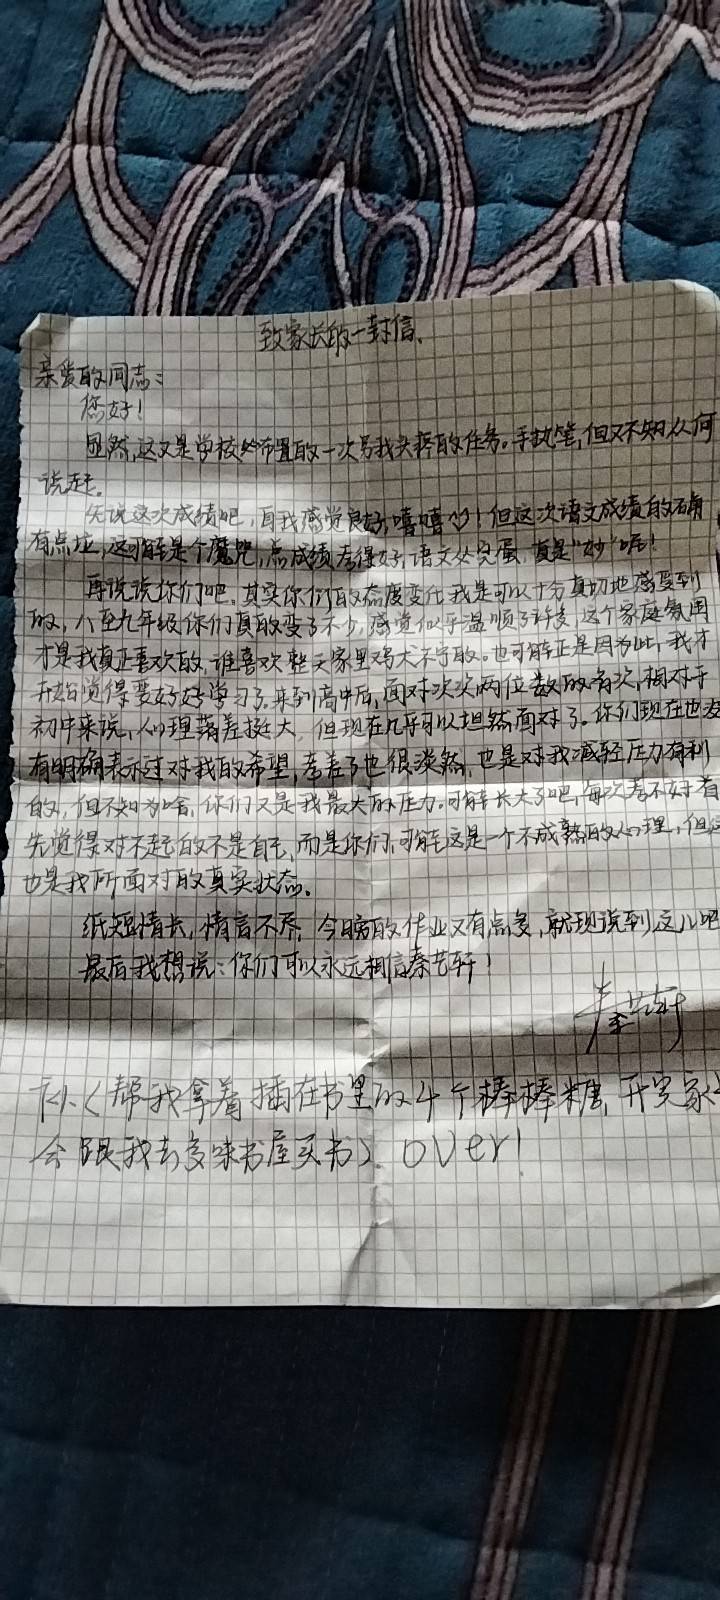 致家长的一封信、
亲爱的同志：
您好！
显然，这又是学校布置的一次另我头疼的任务。手执笔，但又不知从何
说起。
先说这次成绩吧，自我感觉良好，嘻嘻！但这次语文成绩的确
有点垃，这可能是个魔咒，总成绩考得好，语文必完蛋，真是“妙”呢！
再说说你们吧，其实你们的态度变化我是可以十分真切地感受到
的，八至九年级你们真的变了不少，感觉似乎温顺了许多，这个家庭氛围
才是我真正喜欢的，谁喜欢整天家里鸡犬不宁的。也可能正是因为此，我才
开始觉得要好好学习了，来到高中后，面对次次两位数的名次，相对于
初中来说，心理落差挺大，但现在几乎可以坦然面对了。你们现在也没
有明确表示过对我的希望，考差了也很淡然，也是对我减轻压力有利
的，但不知为啥，你们又是我最大的压力。可能长大了吧，每次考不好首
先觉得对不起的不是自己，而是你们，可能这是一个不成熟的心理，但这
也是我所面对的真实状态。
纸短情长，情言不尽，今晚的作业又有点多，就现说到这儿吧
最后我想说：你们可以永远相信秦艺轩！
秦艺轩
补（帮我拿着插在书里的4个棒棒糖，开完家长
会跟我去多味书屋买书）. over!